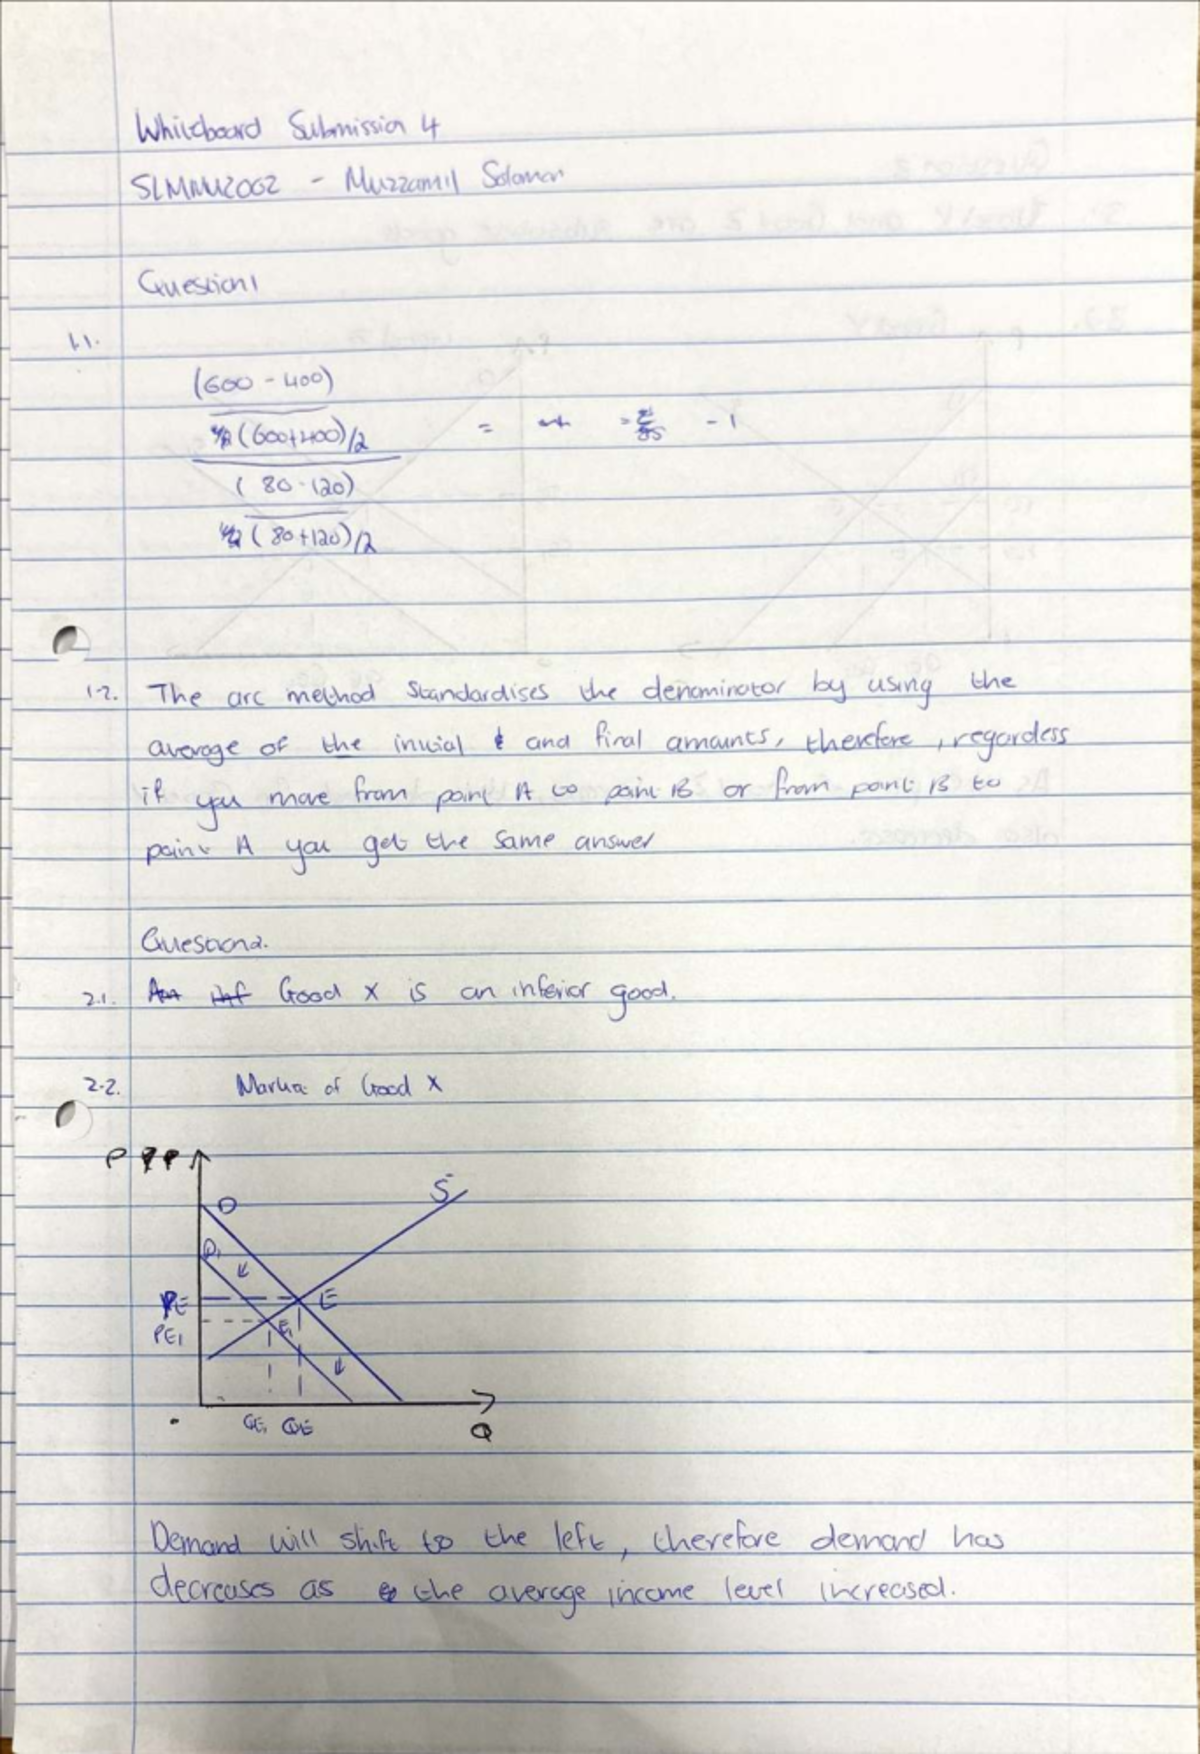 Whiteboard Submission 4
SLMMUZ002 - Muzzamil Solomon
Question 1
1.1.
(600 - 400)
(600+400)/2
(80 - 120)
(80+120)/2
= = -1
1.2. The arc method standardises the denominator by using the
average of the initial and final amounts, therefore, regardless
if you move from point A to point B or from point B to
point A you get the same answer
Question 2.
2.1. Good X is an inferior good.
2.2. Market of Good X
P
S
D
D1
PE E
PE1 E1
QE1 QE Q
Demand will shift to the left, therefore demand has
decreases as the average income level increased.